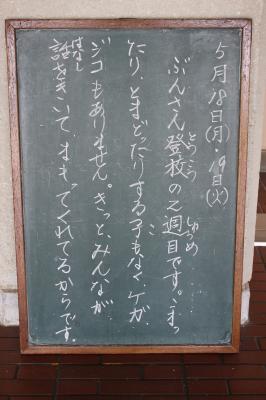 5月18日(月)・19日(火)
とうこう
しゅうめ
ぶんさん登校の2週目です。こまっ
こ
たり、とまどったりする子もなく、ケガ、
ジコもありません。きっと、みんなが
はなし
話をきいて、まもってくれてるからです。